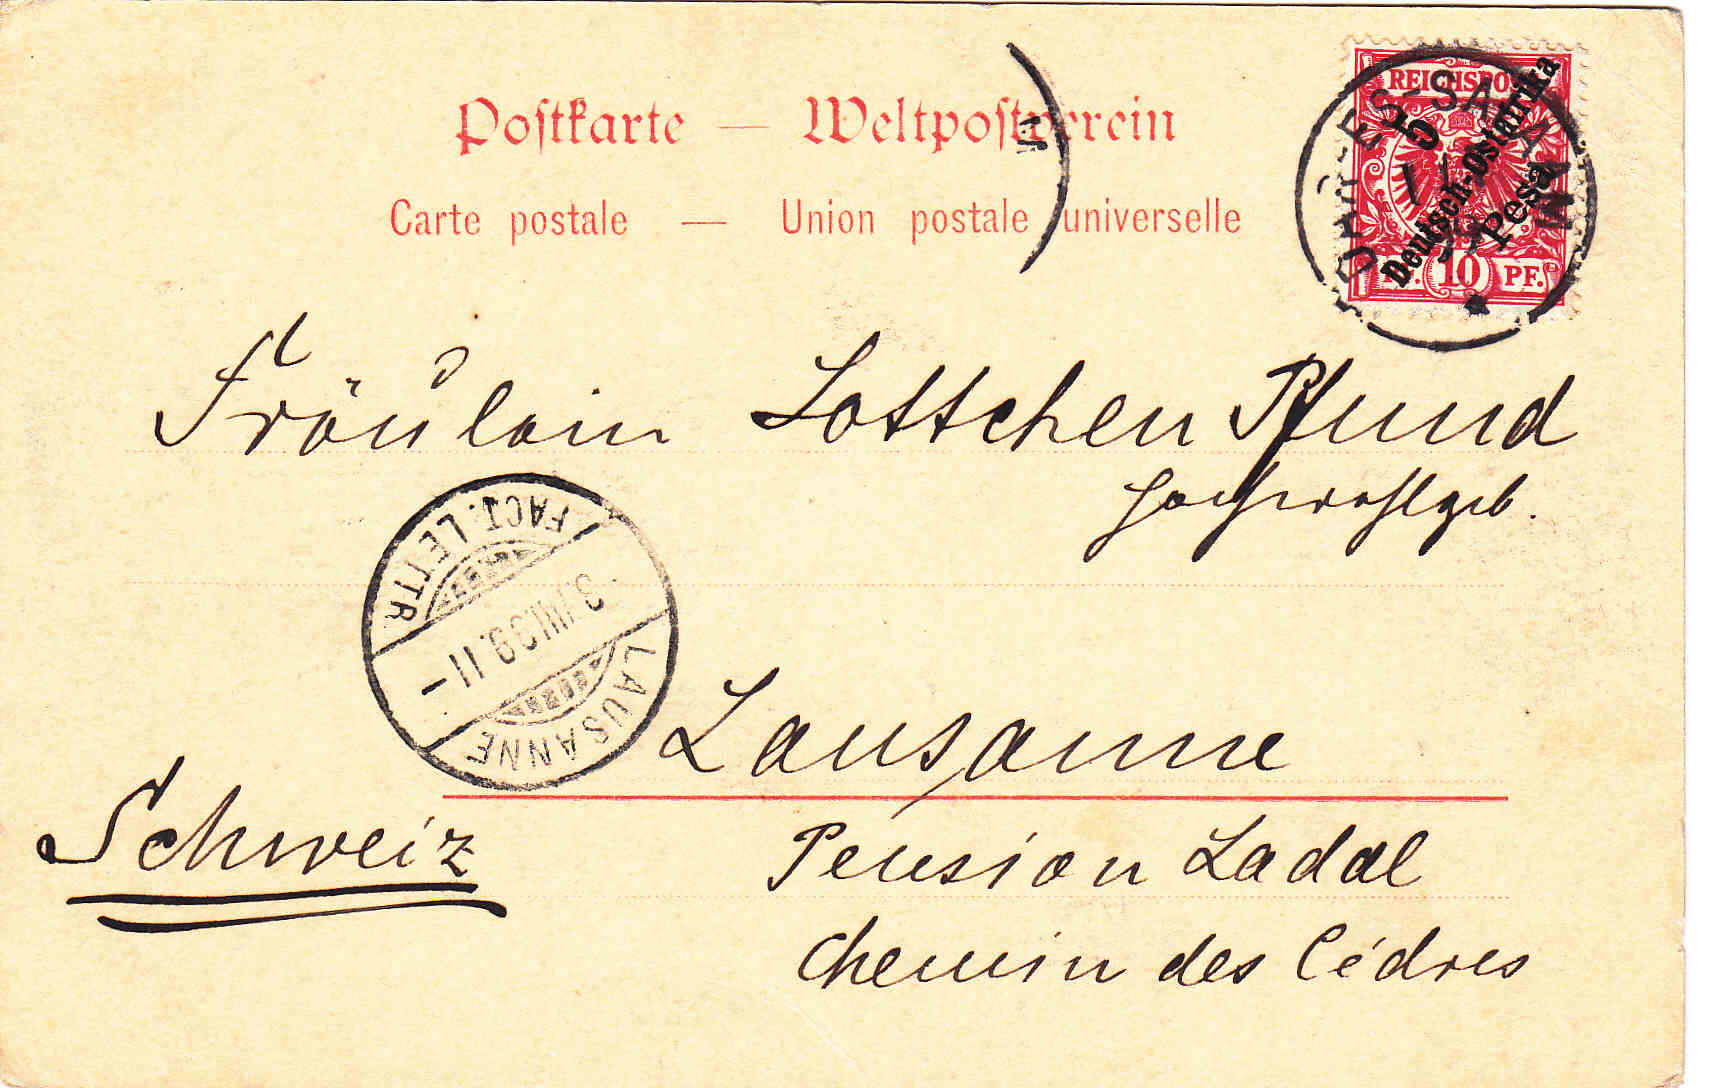 Postkarte — Weltpostverein
Carte postale — Union postale universelle
REICHSPOST
5
Deutsch-Ostafrika
Pesa
10 PF.
DAR-ES-SALAAM
Fräulein Lottchen Pfund
Hochwohlgeb.
FACT. LETTR
LAUSANNE
Lausanne
Schweiz
Pension Ladal
Chemin des Cédres